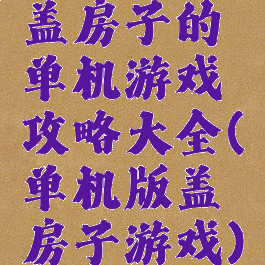 盖房子的
单机游戏
攻略大全(
单机版盖
房子游戏)